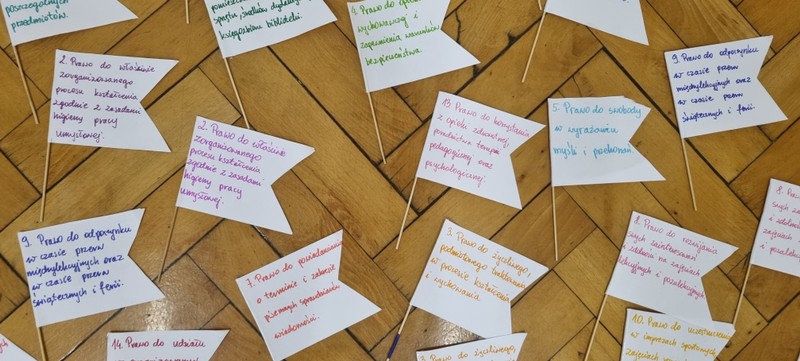 poszczególnych
przedmiotów.
sportu, środków dydakty
księgozbioru biblioteki
4. Prawo do opieki
wychowawczej i
zapewnienia warunków
bezpieczeństwa.
2. Prawo do właściwie
zorganizowanego
procesu kształcenia
zgodnie z zasadami
higieny pracy
umysłowej.
2. Prawo do właściwie
zorganizowanego
procesu kształcenia
zgodnie z zasadami
higieny pracy
umysłowej.
13. Prawo do korzystania
z opieki zdrowotnej,
poradnictwa terapii
pedagogicznej oraz
psychologicznej.
5. Prawo do swobody
w wyrażaniu
myśli i przekonań.
9. Prawo do odpoczynku
w czasie przerw
międzylekcyjnych oraz
w czasie przerw
świątecznych i ferii.
9. Prawo do odpoczynku
w czasie przerw
międzylekcyjnych oraz
w czasie przerw
świątecznych i ferii.
7. Prawo do powiadamiania
o terminie i zakresie
pisemnych sprawdzianów
wiadomości.
3. Prawo do życzliwego,
podmiotowego traktowania
w procesie kształcenia
i wychowania.
8. Prawo do rozwijania
swych zainteresowań
i zdolności na zajęciach
lekcyjnych i pozalekcyjnych
8.
swych za
i zdoln
zajęciach
i pozalek
14. Prawo do udziału
3. Prawo do życzliwego,
10. Prawo do uczestniczenia
w imprezach sportowych,